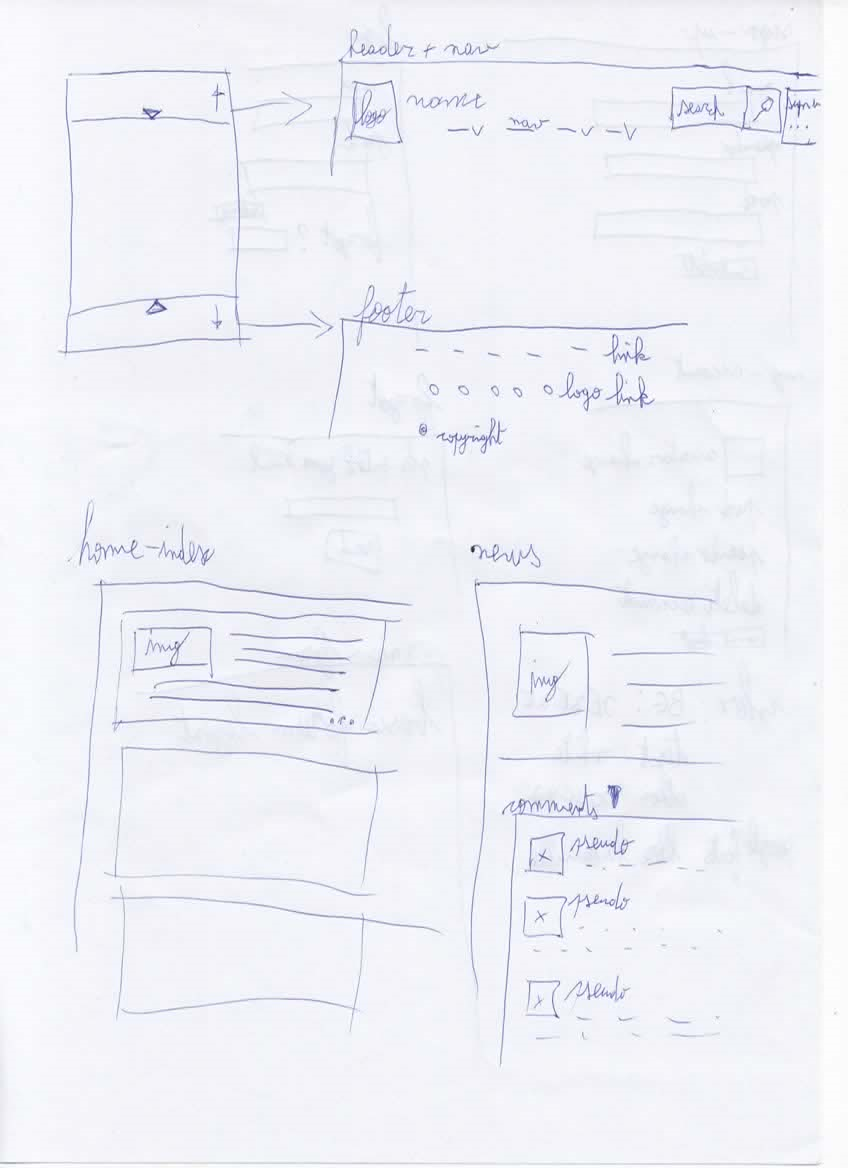 header + nav
logo
name
nav
search
footer
link
logo link
© copyright
home-index
img
...
news
img
comments
x pseudo
x pseudo
x pseudo